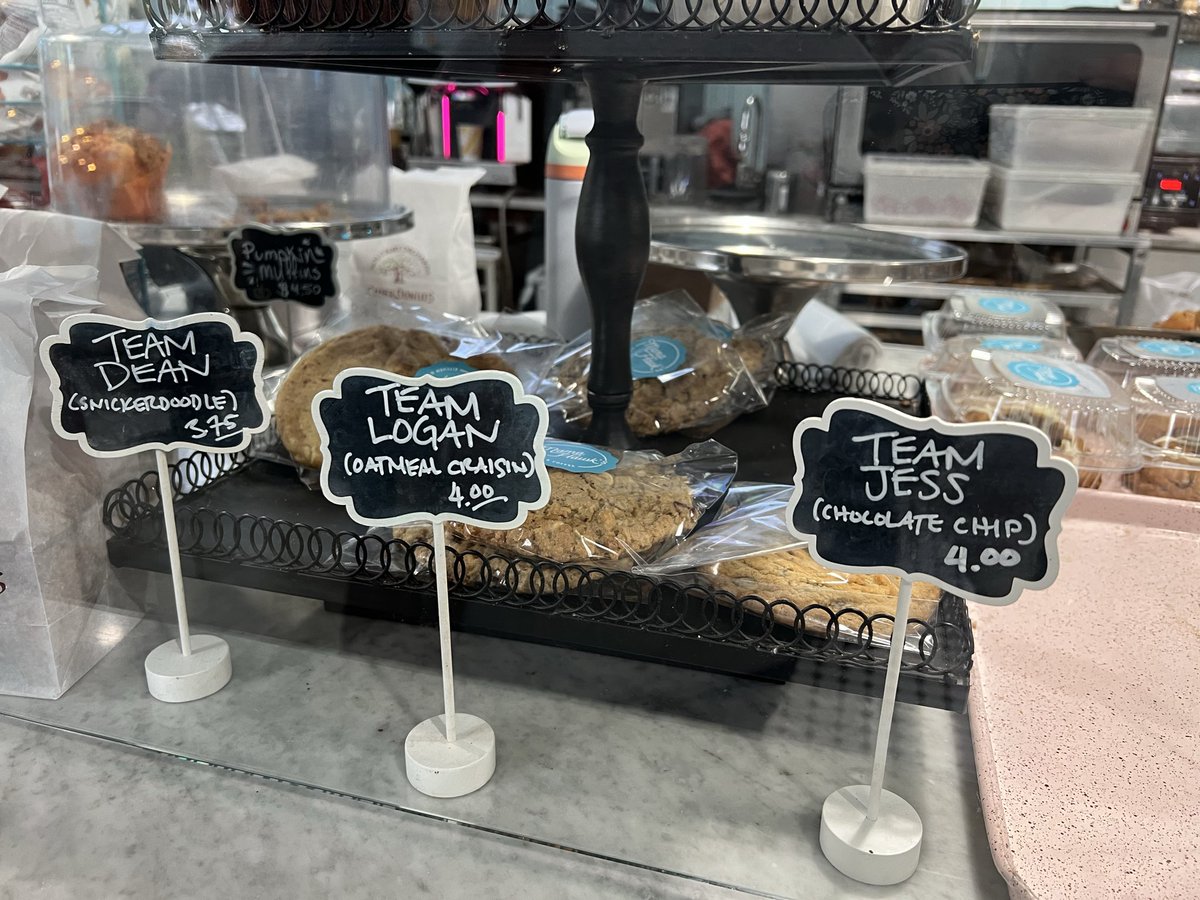 Pumpkin
Muffins
$4.50
TEAM
DEAN
(SNICKERDOODLE)
3.75
TEAM
LOGAN
(OATMEAL CRAISIN)
4.00
TEAM
JESS
(CHOCOLATE CHIP)
4.00